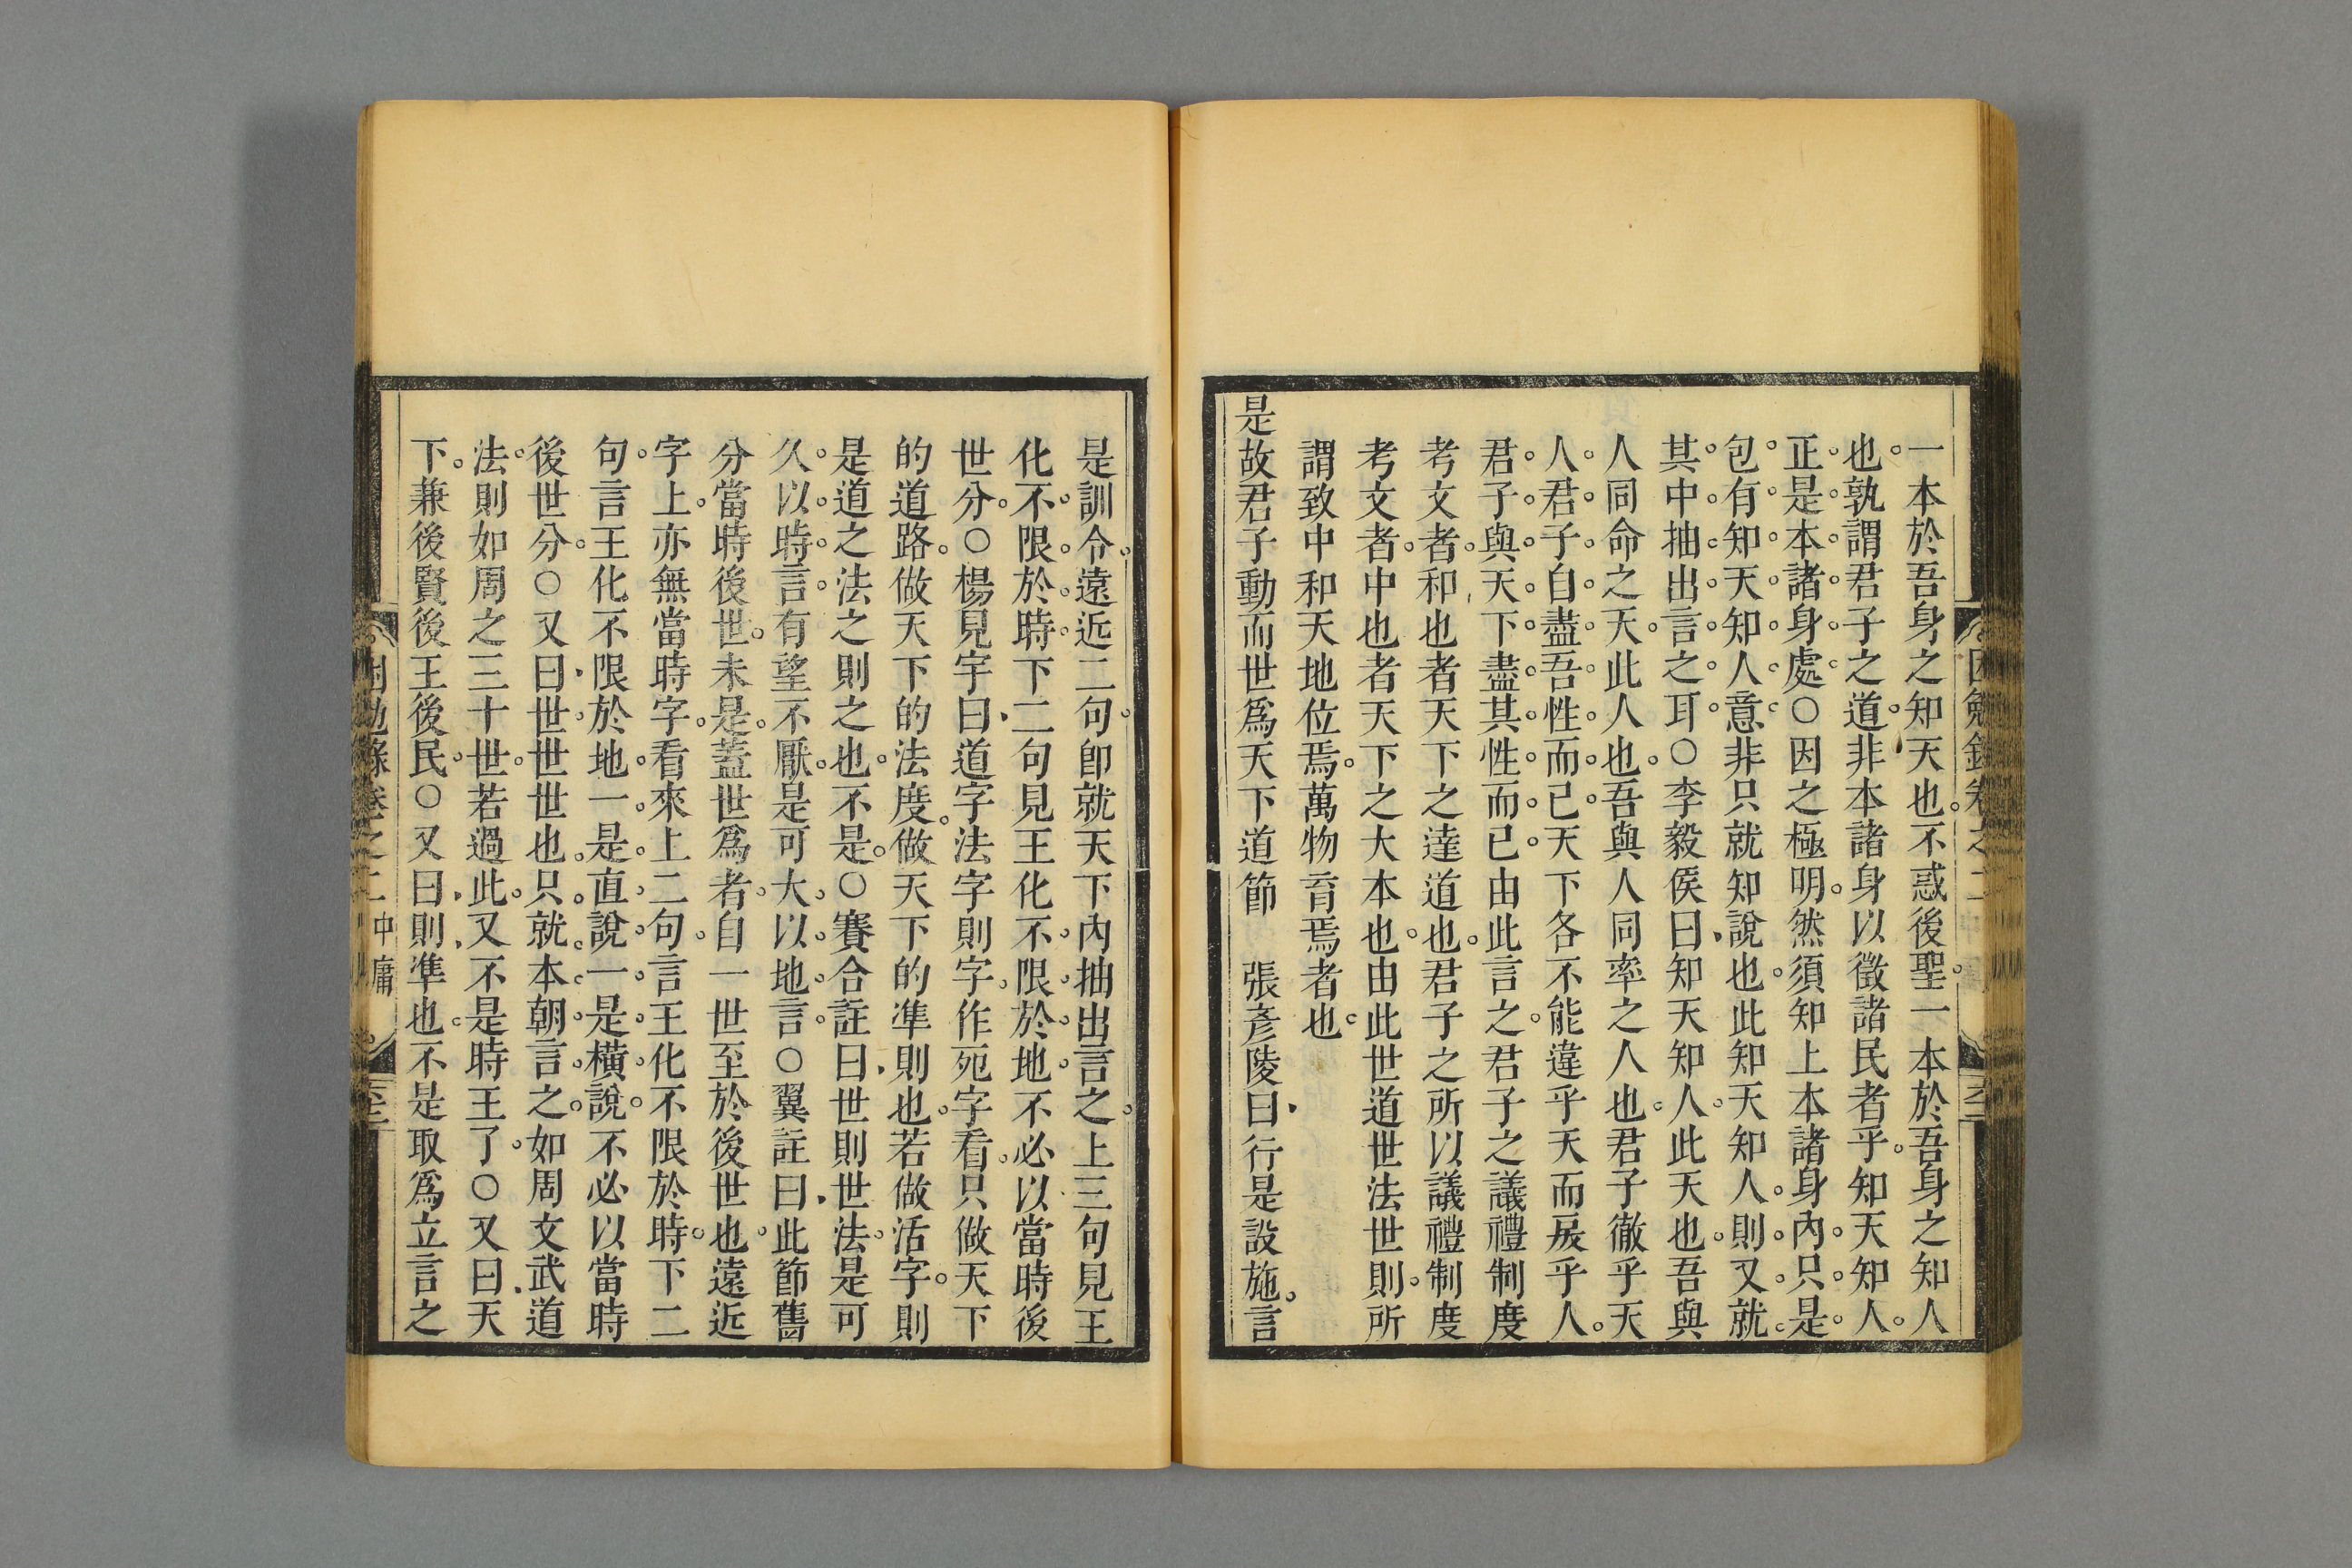 一本於吾身之知天也不惑後聖一本於吾身之知人
也孰謂君子之道非本諸身以徵諸民者乎知天知人
正是本諸身處○因之極明然須知上本諸身內只是
包有知天知人意非只就知說也此知天知人則又就
其中抽出言之耳○李毅侯曰知天知人此天也吾與
人同命之天此人也吾與人同率之人也君子徹乎天
人君子自盡吾性而已天下各不能違乎天而戾乎人
君子與天下盡其性而已由此言之君子之議禮制度
考文者和也者天下之達道也君子之所以議禮制度
考文者中也者天下之大本也由此世道世法世則所
謂致中和天地位焉萬物育焉者也
是故君子動而世爲天下道節　張彥陵曰行是設施言
是訓令遠近二句卽就天下內抽出言之上三句見王
化不限於時下二句見王化不限於地不必以當時後
世分○楊見宇曰道字法字則字作死字看只做天下
的道路做天下的法度做天下的準則也若做活字則
是道之法之則之也不是○賽合註曰世則世法是可
久以時言有望不厭是可大以地言○翼註曰此節舊
分當時後世未是蓋世爲者自一世至於後世也遠近
字上亦無當時字看來上二句言王化不限於時下二
句言王化不限於地一是直說一是橫說不必以當時
後世分○又曰世世世也只就本朝言之如周文武道
法則如周之三十世若過此又不是時王了○又曰天
下兼後賢後王後民○又曰則準也不是取爲立言之
困勉錄卷之二　中庸